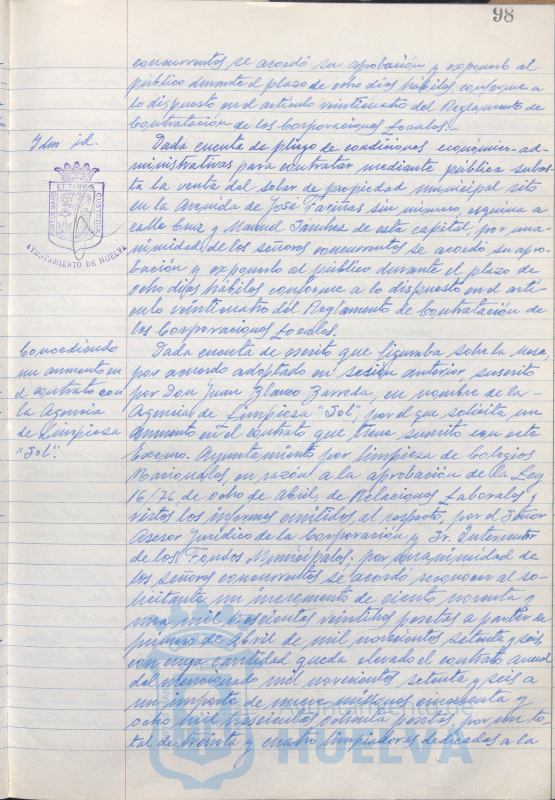 98
concurrentes se acordó su aprobación y exponerlo al
público durante el plazo de ocho días hábiles conforme a
lo dispuesto en el artículo veinticuatro del Reglamento de
Contratación de las Corporaciones Locales.-
Idm id.
Dada cuenta de pliego de condiciones económico-ad-
ministrativas para contratar mediante pública subas-
ta la venta del solar de propiedad municipal sito
en la Avenida de José Fariñas sin número esquina a
calle Cruz y Manuel Sánchez de esta capital, por una-
nimidad de los señores concurrentes se acordó su apro-
bación y exponerlo al público durante el plazo de
ocho días hábiles conforme a lo dispuesto en el artí-
culo veinticuatro del Reglamento de Contratación de
las Corporaciones Locales.
AYUNTAMIENTO DE HUELVA
Concediendo
un aumento en
el contrato con
la Agencia
de Limpieza
"Sol".
Dada cuenta de escrito que figuraba sobre la mesa
por acuerdo adoptado en sesión anterior, suscrito
por Don Juan Blanco Barreda, en nombre de la -
Agencia de Limpieza "Sol", por el que solicita un
aumento en el contrato que tiene suscrito con este
Excmo. Ayuntamiento por limpieza de Colegios
Nacionales, en razón a la aprobación de la Ley
16/76 de ocho de Abril, de Relaciones Laborales y
vistos los informes emitidos al respecto, por el Señor
Asesor Jurídico de la Corporación y Sr. Interventor
de los Fondos Municipales. por unanimidad de
los señores concurrentes se acordó reconocer al so-
licitante un incremento de ciento noventa y
una mil trescientas veintidos pesetas a partir de
primero de abril de mil novecientos setenta y seis
con cuya cantidad queda elevado el contrato anual
del mencionado mil novecientos setenta y seis a
un importe de nueve millones cincuenta y
ocho mil trescientas ochenta pesetas, por un to-
tal de treinta y cuatro limpiadoras dedicadas a la
HUELVA